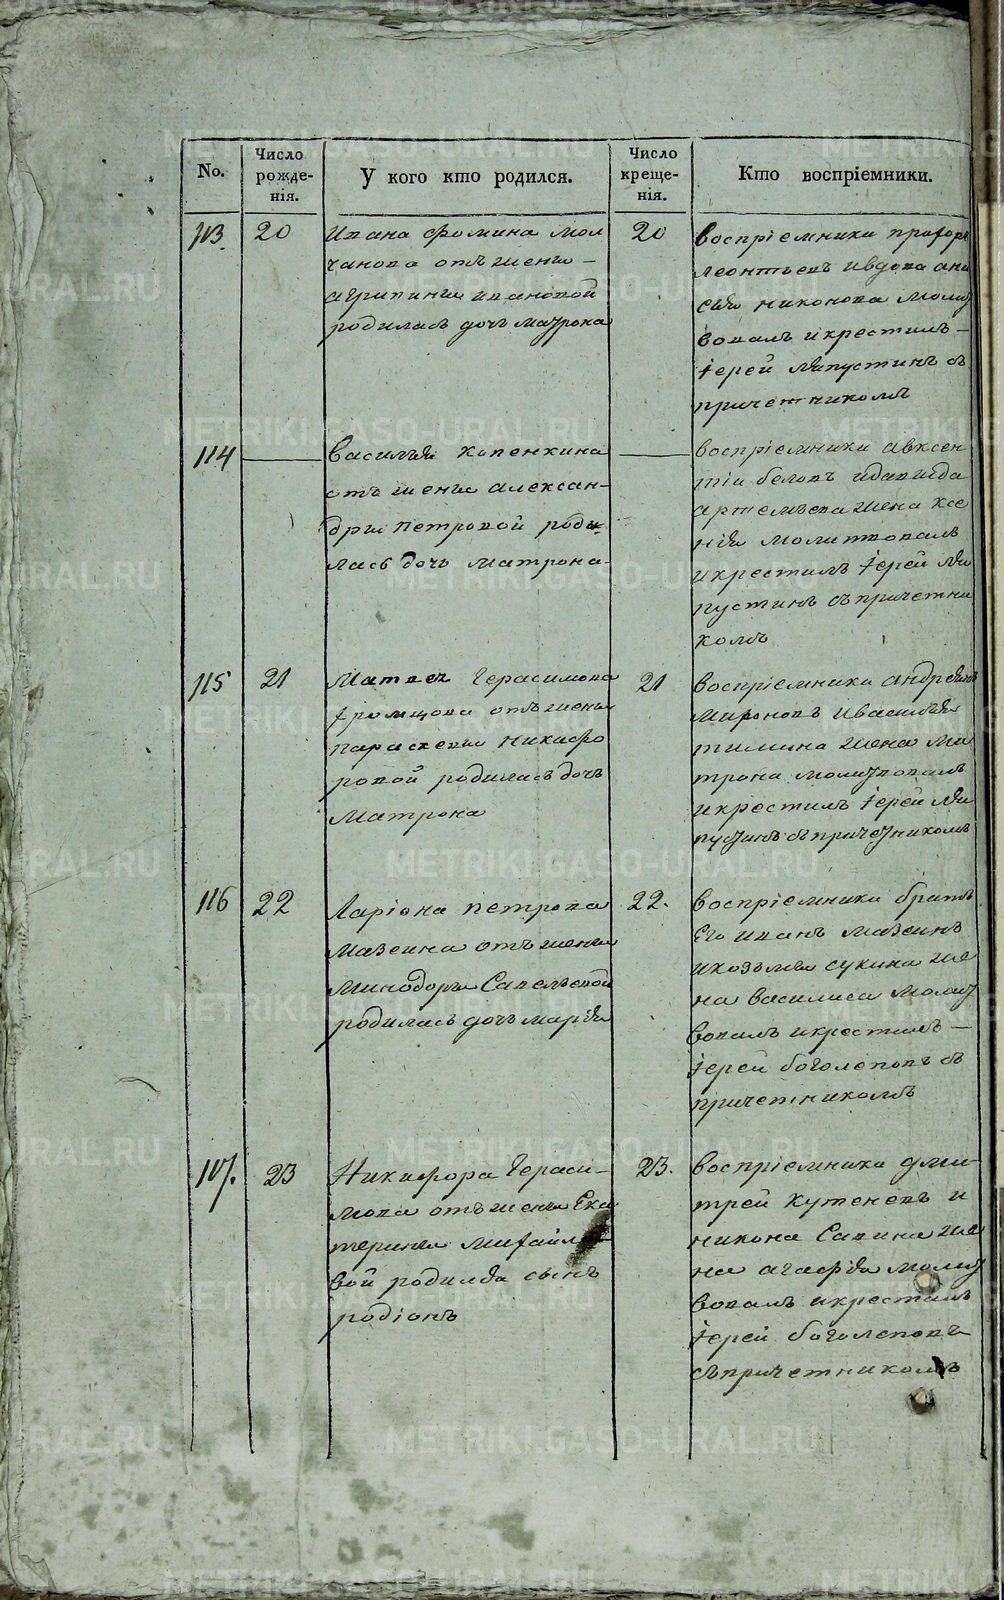 No.
Число рожде-нія.
У кого кто родился.
Число креще-нія.
Кто воспріемники.
113.
20
Ивана Фомина Мол
чанова отъ жены –
агрипины ивановой
родилась дочь матрона
20
воспріемники прохоръ
леонтьевъ ивдова ани
сия никонова молит
вовалъ икрестилъ –
іерей ляпустинъ съ
причетникомъ
114
василья копенкина
отъ жены алексан-
дры петровой роди
лась дочь матрона
воспріемники авксен
тіи беловъ идавида
артемьева жена ксе
нія молитвовалъ
икрестилъ іерей ля
пустинъ съпричетни
комъ
115
21
Матвея Герасимова
громцова отъ жены
параскевы никифо
ровой родилась дочь
матрона
21
воспріемники андреянъ
мироновъ ивасилья
тимина жена ма
трона молитвовалъ
икрестилъ іерей ля
пустинъ съпричетникомъ
116
22
Ларіона петрова
мазеина отъ жены
минодоры Савельевой
родилась дочь марія
22.
воспріемники братъ
Его иванъ мазеинъ
икозьмы сукина же
на василиса молит
вовалъ икрестилъ –
іерей боголеповъ съ
причетникомъ
117.
23
Никифора Гераси–
мова отъ жены Ека
терины михайло
вой родился сынъ
родіонъ
23.
воспріемники дми–
трей кутеневъ и
никона Савина же
на агафія молит
вовалъ икрестилъ
іерей боголеповъ
съпричетникомъ
METRIKI.GASO-URAL.RU